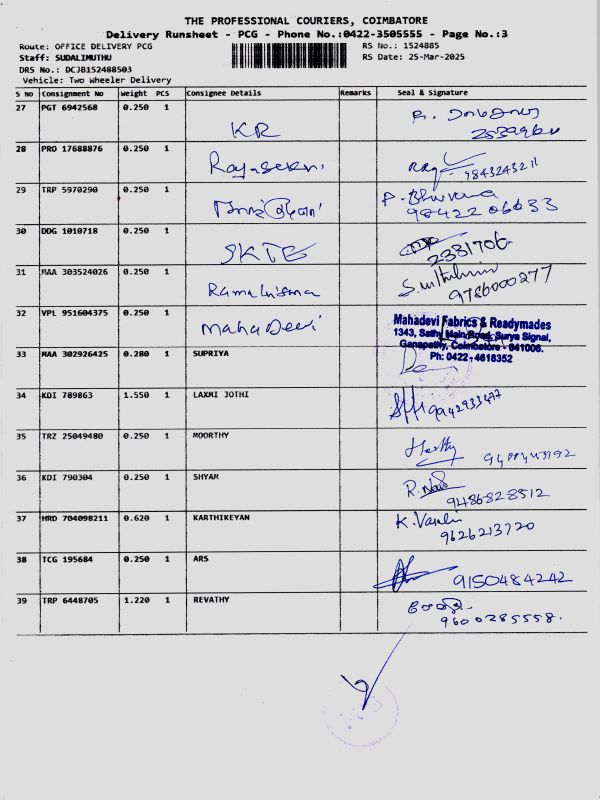 THE PROFESSIONAL COURIERS, COIMBATORE
Delivery Runsheet - PCG - Phone No.:0422-3505555 - Page No.:3
Route: OFFICE DELIVERY PCG RS No.: 1524885
Staff: SUDALIMUTHU RS Date: 25-Mar-2025
DRS No.: DCJB152488503
Vehicle: Two Wheeler Delivery
S no Consignment No Weight PCS Consignee Details Remarks Seal & Signature
27 PGT 6942568 0.250 1 KR
28 PRO 17688876 0.250 1 Rajasekar 9843243211
29 TRP 5970290 0.250 1 P. Bhuvana
98422 06633
30 DDG 1010718 0.250 1 SKTE 2331706
31 MAA 303524026 0.250 1 Ramakrishna
9786000277
32 VPL 951604375 0.250 1 MahaDevi
Mahadevi Fabrics & Readymades
1343, Sathy Main Road, Surya Signal,
Ganapathy, Coimbatore - 641006.
Ph: 0422-4618352
33 MAA 302926425 0.280 1 SUPRIYA
34 KDI 789863 1.550 1 LAXMI JOTHI 9942933477
35 TRZ 25049480 0.250 1 MOORTHY
36 KDI 790304 0.250 1 SHYAM
9486828512
37 HRD 704098211 0.620 1 KARTHIKEYAN K. Vasuki
9626213720
38 TCG 195684 0.250 1 ARS 9150484242
39 TRP 6448705 1.220 1 REVATHY
9600285558.